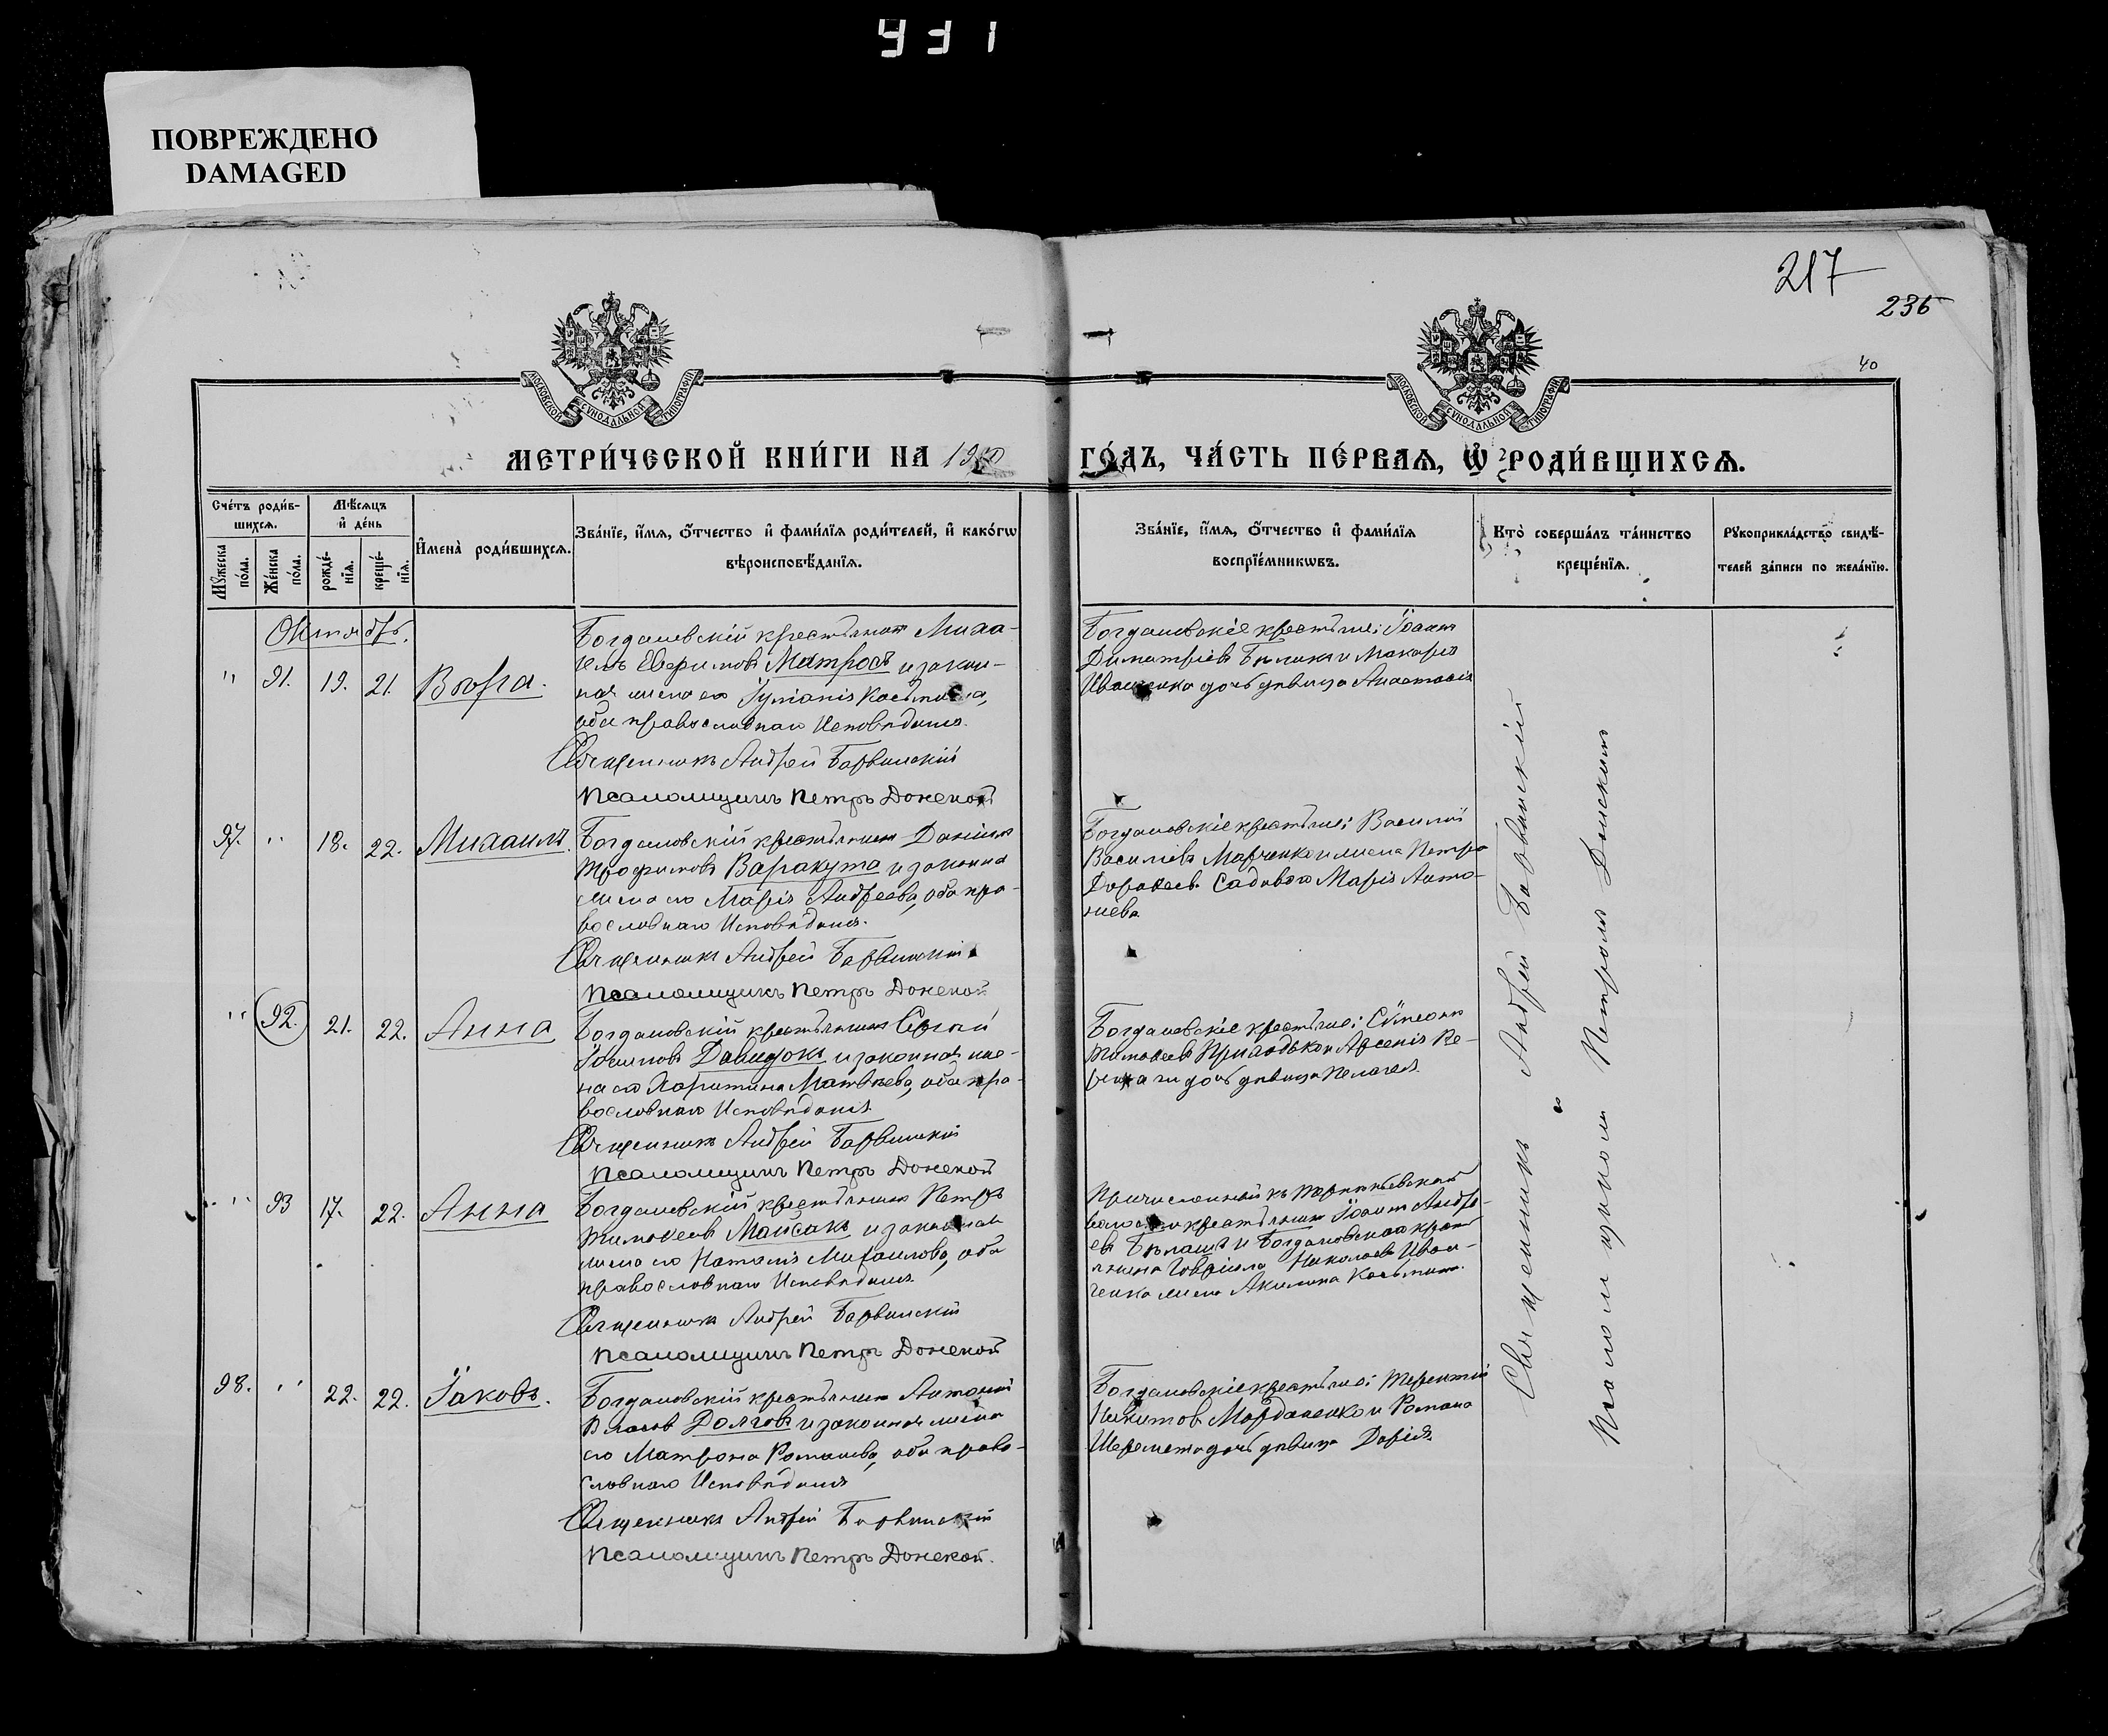 ПОВРЕЖДЕНО
DAMAGED
217
236
40
МОСКОВСКОЙ СѴНОДАЛЬНОЙ ТИПОГРАФІИ
МОСКОВСКОЙ СѴНОДАЛЬНОЙ ТИПОГРАФІИ
МЕТРИ́ЧЕСКОЙ КНИ́ГИ НА 19
ГО́ДЪ, ЧА́СТЬ ПЕ́РВАѦ, Ѿ РОДИ́ВШИХСѦ.
Сче́тъ роди́в-
шихсѧ.
Мꙋжеска по́ла.
Же́нска по́ла.
Мѣ́сѧцъ
и҆ де́нь
рожде́-
нїѧ.
креще́-
нїѧ.
И҆мена̀ роди́вшихсѧ.
Зва́нїе, и҆́мѧ, ѻ҆́тчество и҆ фами́лїѧ роди́телей, и҆ како́гѡ
вѣроисповѣ́данїѧ.
Зва́нїе, и҆́мѧ, ѻ҆́тчество и҆ фами́лїѧ
воспрїе́мникѡвъ.
Кто̀ соверша́лъ та́инство
креще́нїѧ.
Рꙋкоприкла́дство свидѣ́-
телей за́писи по жела́нїю.
Октябрь.
" 91. 19. 21. Вѣра.
Богдановскій крестьянинъ Миха-
илъ Евфимовъ Матросъ и закон-
ная жена его Іуліанія Косьмина,
оба православнаго Исповѣданія.
Священникъ Андрей Барвинскій
Псаломщикъ Петръ Донской
Богдановскіе крестьяне: Іоаннъ
Димитріевъ Бѣликъ и Макарія
Иващенка дочь дѣвица Анастасія
97. " 18. 22. Михаилъ.
Богдановскій крестьянинъ Даніилъ
Трофимовъ Варакута и законная
жена его Марія Андреева, оба пра-
вославнаго Исповѣданія.
Священникъ Андрей Барвинскій
Псаломщикъ Петръ Донской
Богдановскіе крестьяне: Василій
Васильевъ Марченко и жена Петра
Дорофеева Садоваго Марія Анто-
ніева
" 92. 21. 22. Анна
Богдановскій крестьянинъ Сергій
Давидокъ и законная же-
на его Харитина Матвѣева, оба пра-
вославнаго Исповѣданія.
Священникъ Андрей Барвинскій
Псаломщикъ Петръ Донской
Богдановскіе крестьяне: Сѷмеонъ
Тимоѳеевъ Приходько и Арсенія
дочь дѣвица Пелагея.
" 93 17. 22. Анна
Богдановскій крестьянинъ Петръ
Тимоѳеевъ Майсакъ и законная
жена его Наталія Михаилова, оба
православнаго Исповѣданія.
Священникъ Андрей Барвинскій
Псаломщикъ Петръ Донской
Причисленный къ Терпѣньевской
волости крестьянинъ Іоаннъ Андре-
евъ Бѣлашъ и Богдановскаго кресть-
янина Гавріила Николаева Иван-
ченка жена Акилина Косьмина.
98. " 22. 22. Іаковъ.
Богдановскій крестьянинъ Антоній
Власовъ Долговъ и законная жена
его Матрона Романова, оба право-
славнаго Исповѣданія
Священникъ Андрей Барвинскій
Псаломщикъ Петръ Донской.
Богдановскіе крестьяне: Терентій
Никитовъ Марданенко и Романа
Шеремета дочь дѣвица Дарія.
Священникъ Андрей Барвинскій
Псаломщикомъ Петромъ Донскимъ